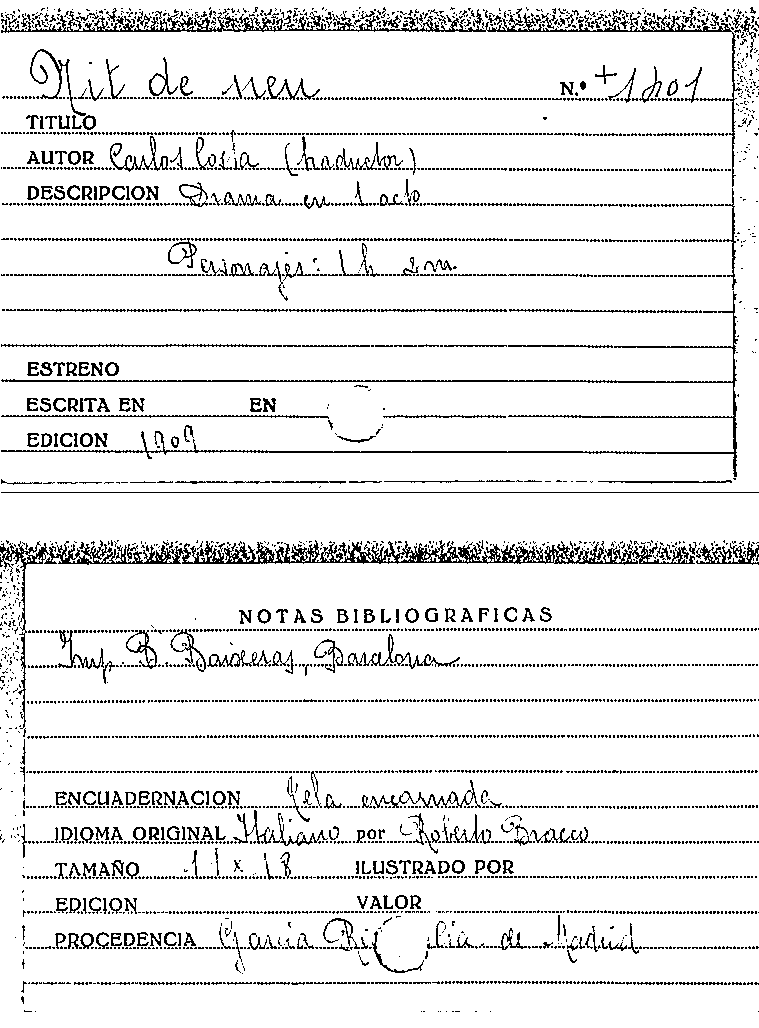 Nit de neu N.º +1401
TITULO
AUTOR Carlos Costa (traductor)
DESCRIPCION Drama en 1 acto
Personajes: 1 h 2 m.
ESTRENO
ESCRITA EN EN
EDICION 1909
NOTAS BIBLIOGRAFICAS
Imp. B. Baxeras, Barcelona
ENCUADERNACION Tela encarnada
IDIOMA ORIGINAL Italiano por Roberto Bracco
TAMAÑO 11 x 18 ILUSTRADO POR
EDICION VALOR
PROCEDENCIA García de Madrid